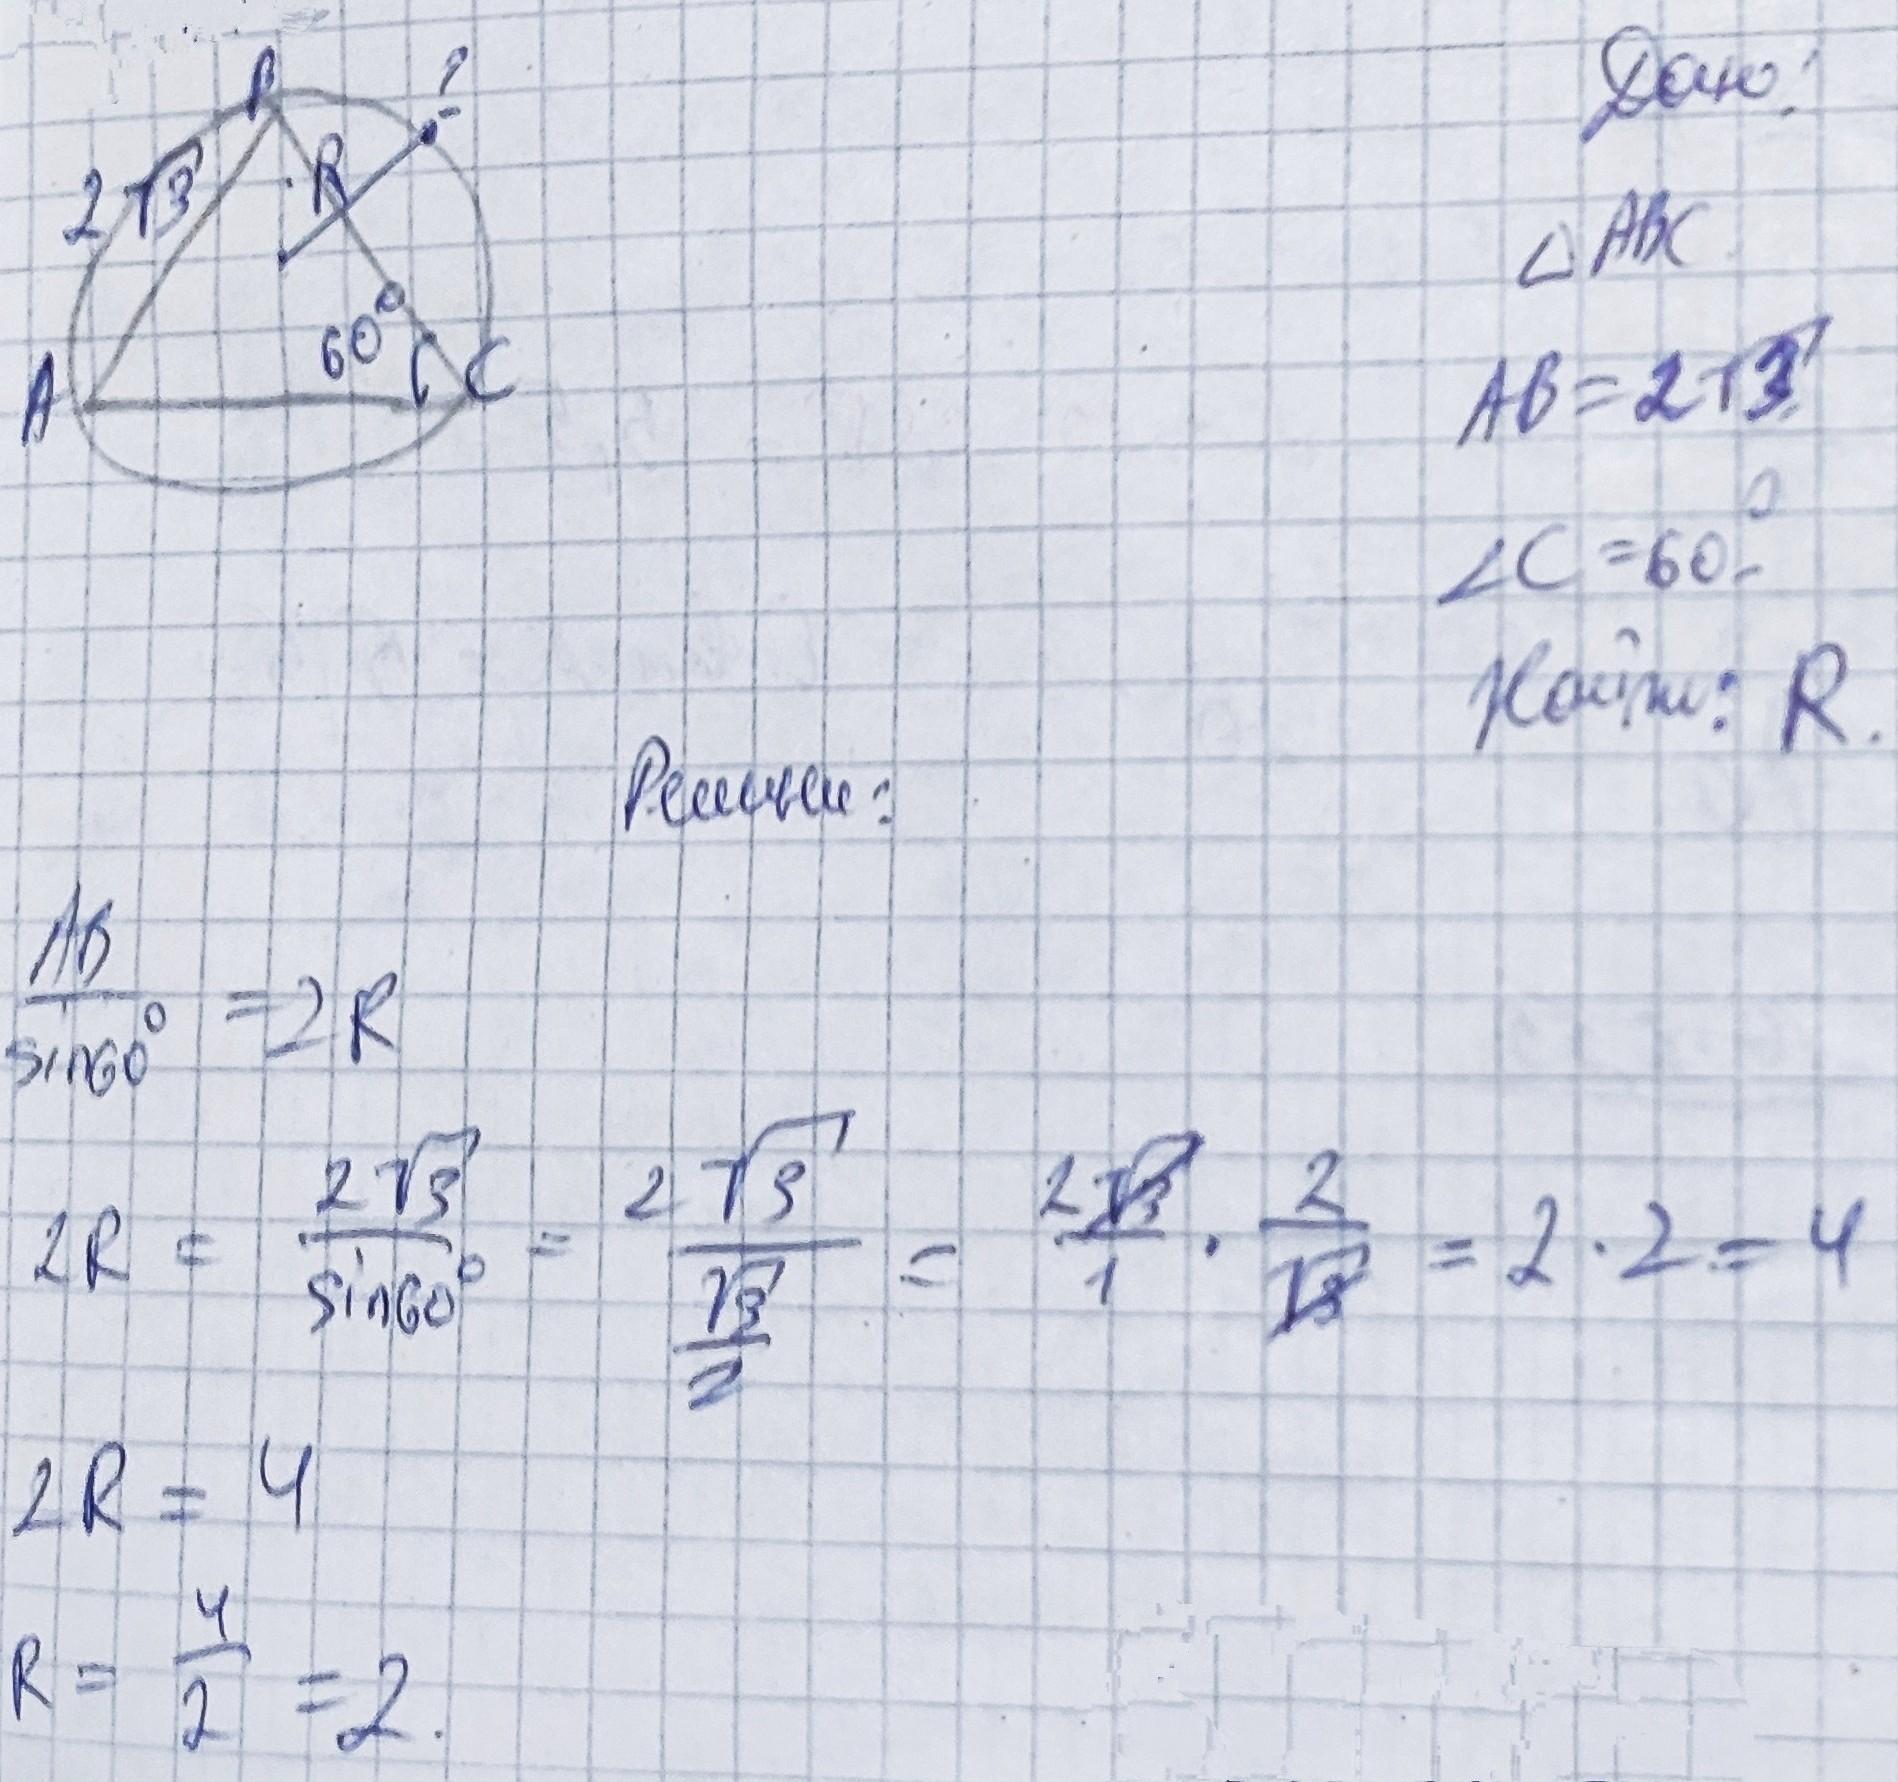 B ?
2√3 R
60°
A C
Дано:
△ABC
AB=2√3
∠C=60°
Найти: R.
Решение:
AB/sin60° =2R
2R = 2√3/sin60° = 2√3/(√3/2) = 2√3/1 · 2/√3 = 2·2=4
2R = 4
R = 4/2 =2.